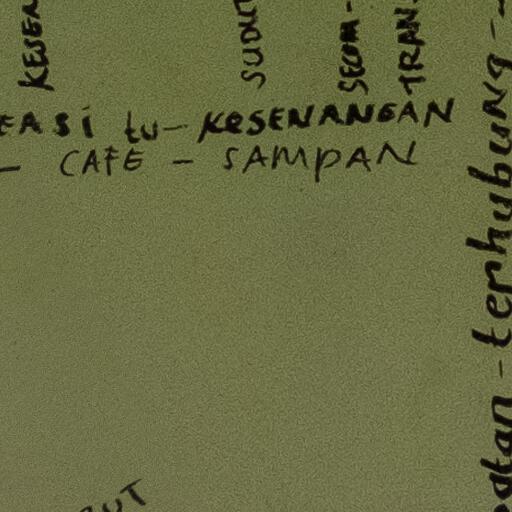 KESER
SUDUT
SECOM -
TRAN
EASi tu - KESENANGAN
- CAFE - SAMPAN
gtan - terhubung -
UT